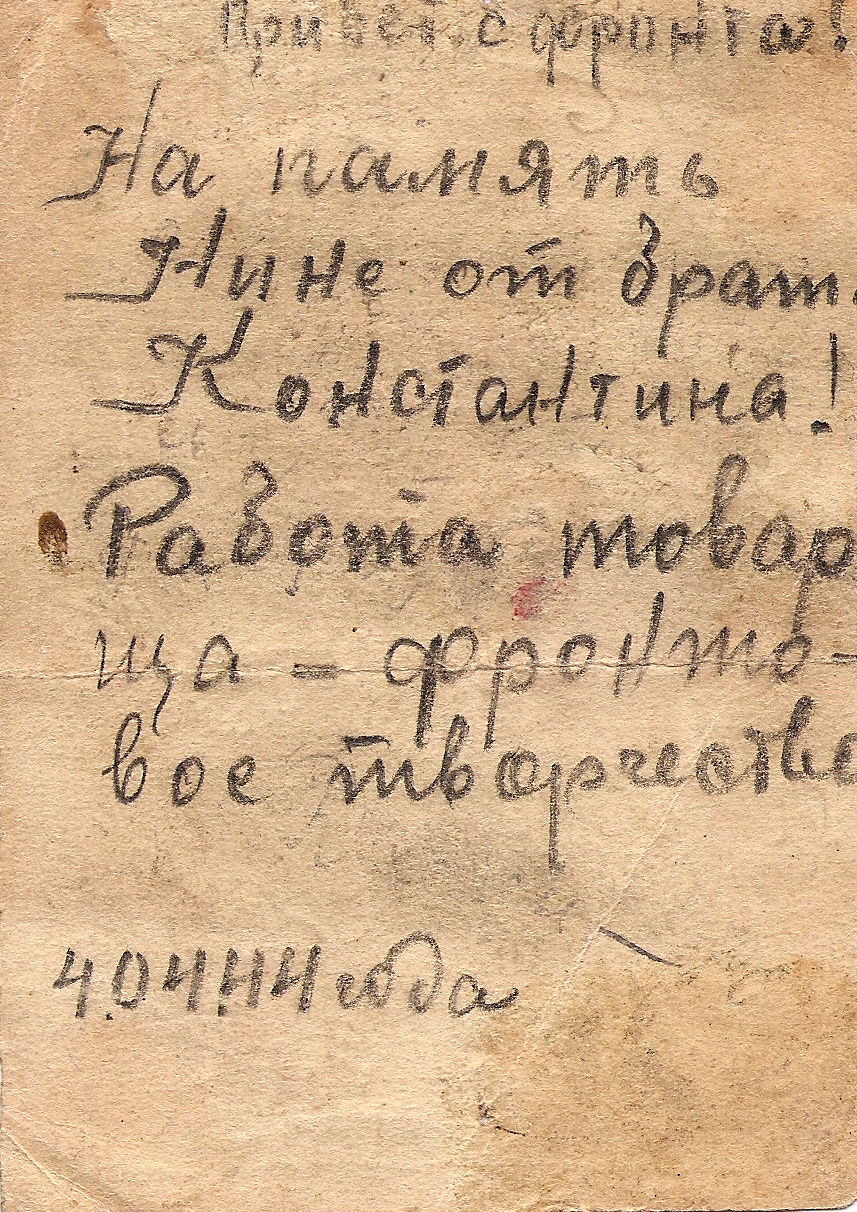 Привет с фронта!
На память
Нине от брата
Константина!
Работа товари
ща - фронто-
вое творчество
4.04.44 года